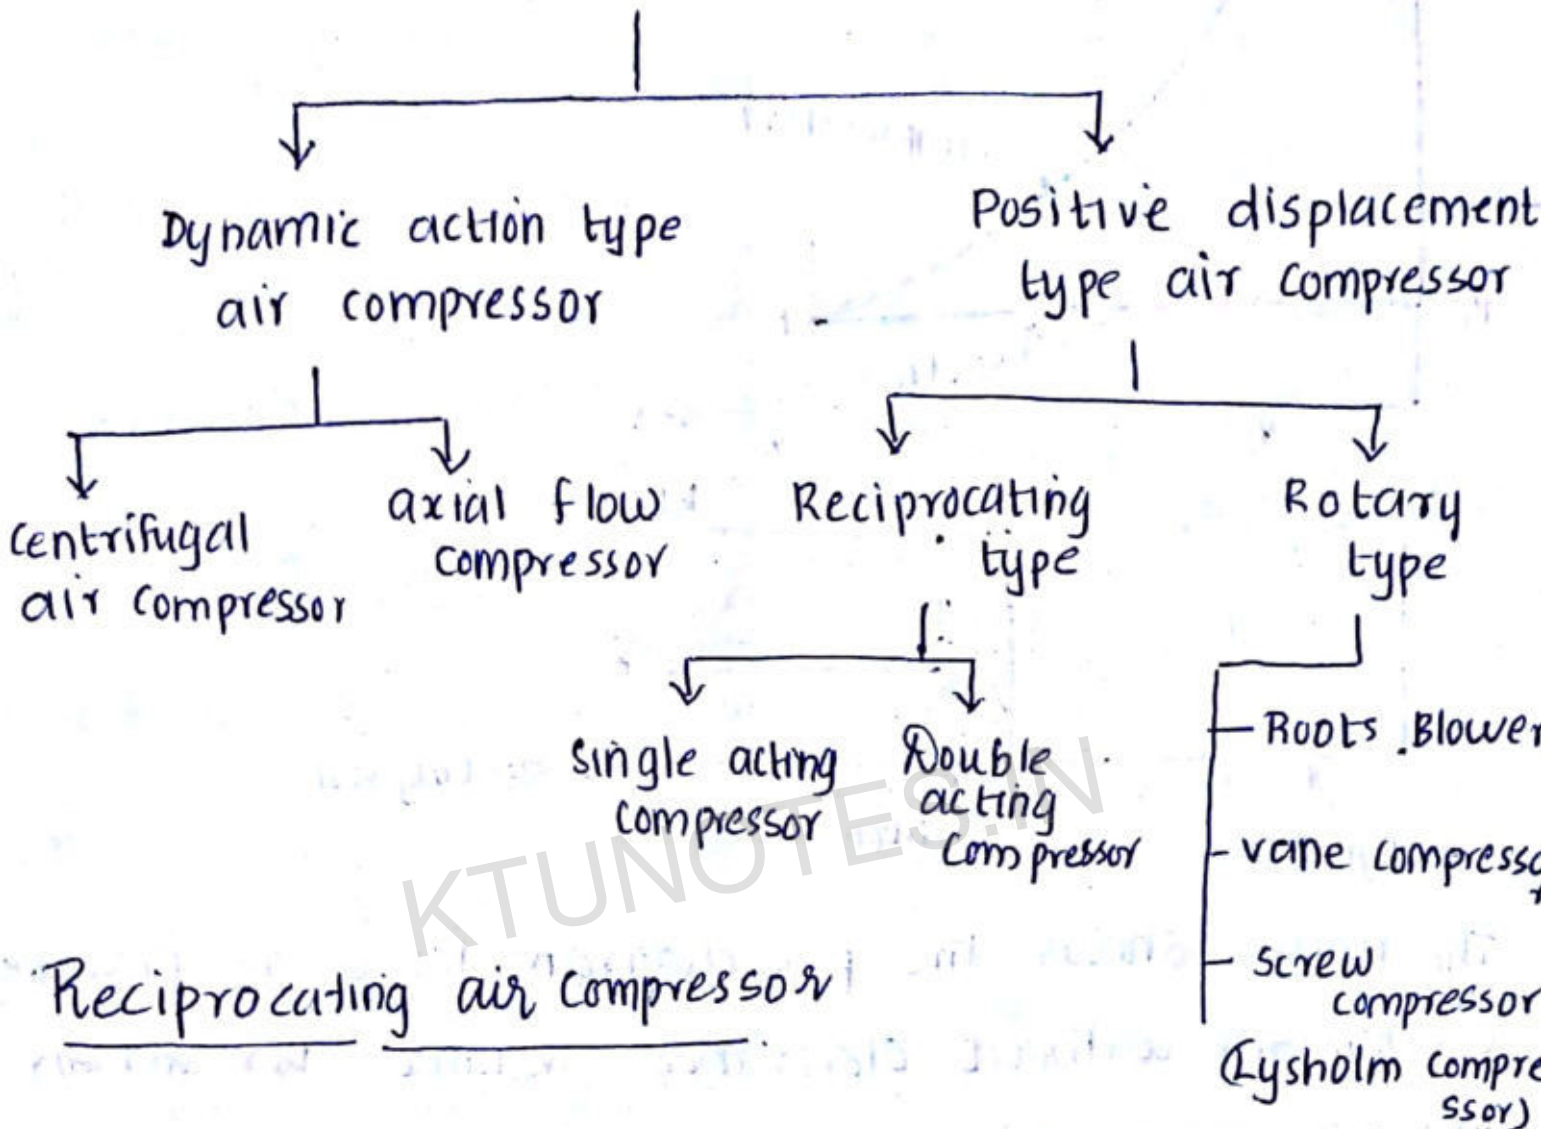 Dynamic action type
air compressor
Positive displacement
type air compressor
Centrifugal
air compressor
axial flow
compressor
Reciprocating
type
Rotary
type
Single acting
compressor
Double
acting
compressor
Roots Blower
vane compressor
screw
compressor
(Lysholm compre
ssor)
KTUNOTES.IN
Reciprocating air compressor